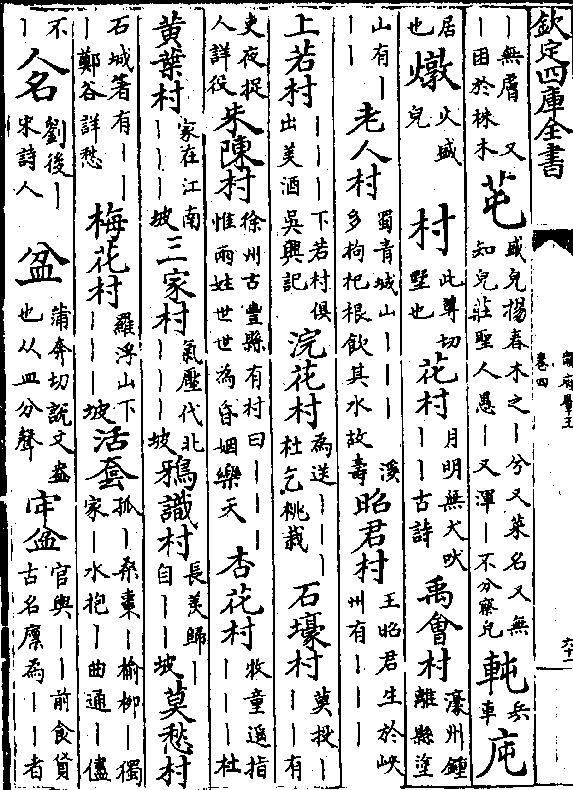 欽定四庫全書
韻府羣玉
卷四
六十一
丨無膚又丨困於株木 芚 盛皃揚春木之丨兮又菜名又無知皃莊聖人愚丨又渾丨不分察皃 軘 兵車 庉
居也 燉 火盛皃 村 此尊切墅也 花村 月明無犬吠丨丨古詩 禹會村 濠州鍾離縣塗
山有丨丨丨 老人村 蜀青城山丨丨丨溪多枸杞根飲其水故壽 昭君村 王昭君生於峽州有丨丨丨
上若村 丨丨丨丨下若村俱出美酒吳興記 浣花村 為送丨丨丨杜乞桃栽 石壕村 莫投丨丨丨有
吏夜捉人詳役 朱陳村 徐州古豐縣有村曰丨丨丨惟兩姓世世為昏姻樂天 杏花村 牧童遥指丨丨丨杜
黄葉村 家在江南丨丨丨坡 三家村 氣壓代北丨丨丨坡 鴉識村 長羨歸丨自丨丨坡 莫愁村
石城箸有丨丨丨鄭谷詳愁 梅花村 羅浮山下丨丨丨坡 活套 孤丨桑棗丨榆柳丨獨家丨水抱丨曲通丨儘
不丨 人名 劉後丨宋詩人 盆 蒲奔切說文盎也从皿分聲 牢盆 官與丨丨前食貨古名廩為丨丨者